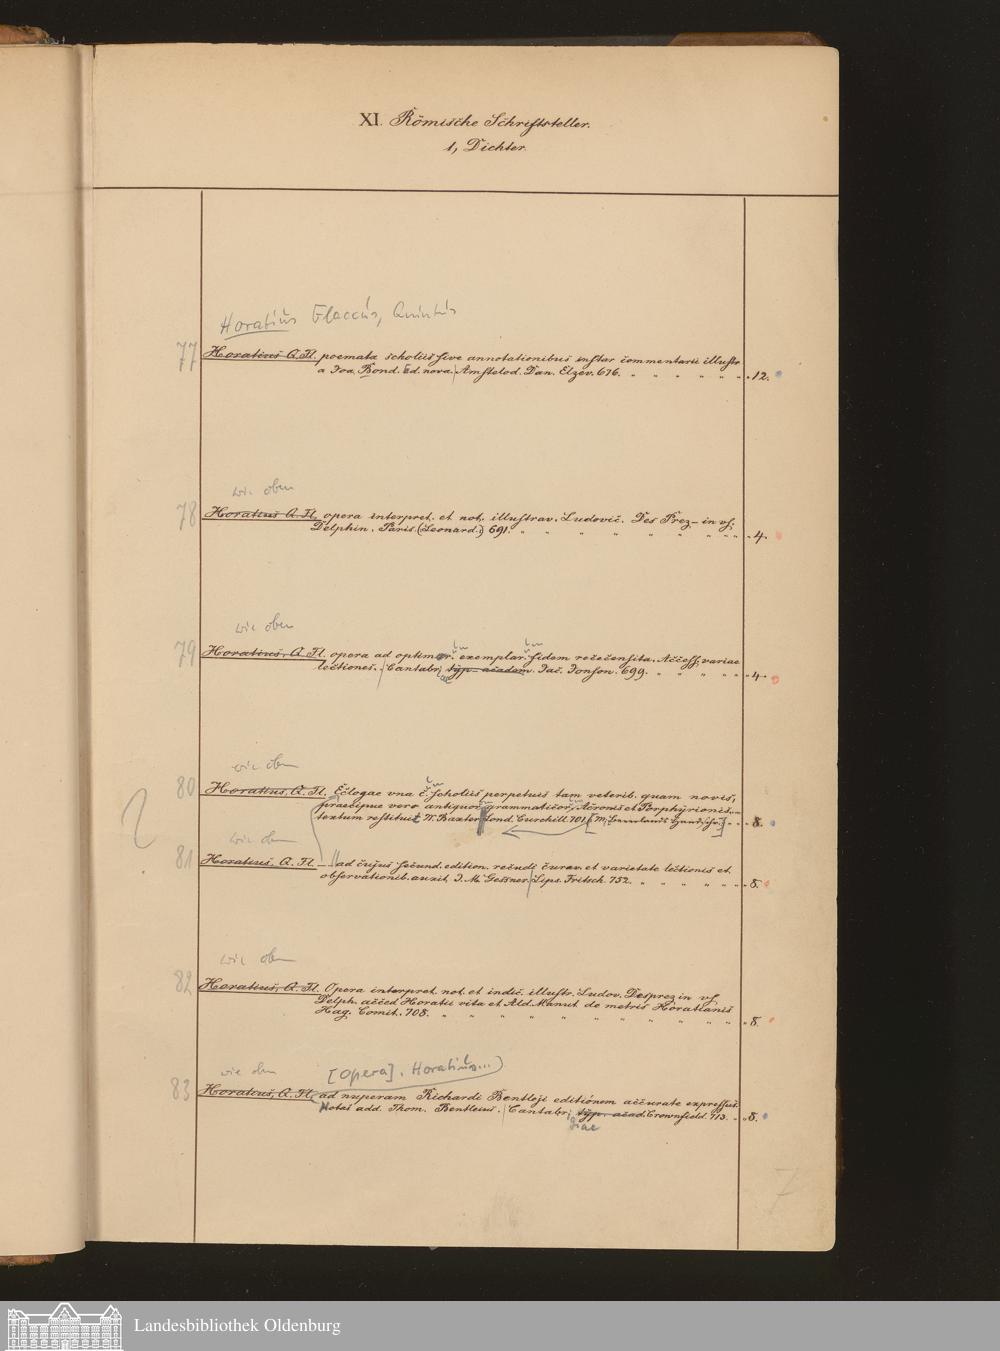 XI. Römische Schriftsteller.
1, Dichter.
Horatius Flaccus, Quintus
77 Horatius Q. Fl. poemata scholiis sive annotationibus instar commentarii illustr
a Joa. Bond. Ed. nova. Amstelod. Dan. Elzev. 676. " " " " " " 12.
wie oben
78 Horatius Q. Fl. opera interpret. et not. illustrav. Ludovic. Des Prez - in us.
Delphin. Paris. (Leonard.) 691. " " " " " " " " 4.
wie oben
79 Horatius, Q. Fl. opera ad optimor. exemplar. fidem rececensita. Access. variae
lectiones. Cantabr. typ. academ. Jac. Tonson. 699. " " " " " 4.
wie oben
80 Horatius, Q. Fl. Eclogae vna c. scholiis perpetuis tam veterib. quam novis,
praecipue vero antiquor. grammaticor. Acronis et Porphyrionis
textum restituit W. Baxter Lond. Curchill. 701. " " 8.
wie oben
81 Horatius, Q. Fl. - ad cujus secund. edition. recudi curav. et varietate lectionis et
observationib. auxit J. M. Gessner. Lips. Fritsch. 752. " " " " " 8.
wie oben
82 Horatius, Q. Fl. Opera interpret. not. et indic. illustr. Ludov. Desprez in us.
Delph. acced Horatii vita et Ald. Manut. de metris Horatianis
Hag. Comit. 708. " " " " " " " " " " 8.
wie oben [Opera]. Horatius...)
83 Horatius, Q. Fl. ad nuperam Richardi Bentleji editionem accurate expressus.
Notas add. Thom. Bentleius. Cantabr. typ. acad. Crownfield. 713. " 8.
giae
7
Landesbibliothek Oldenburg